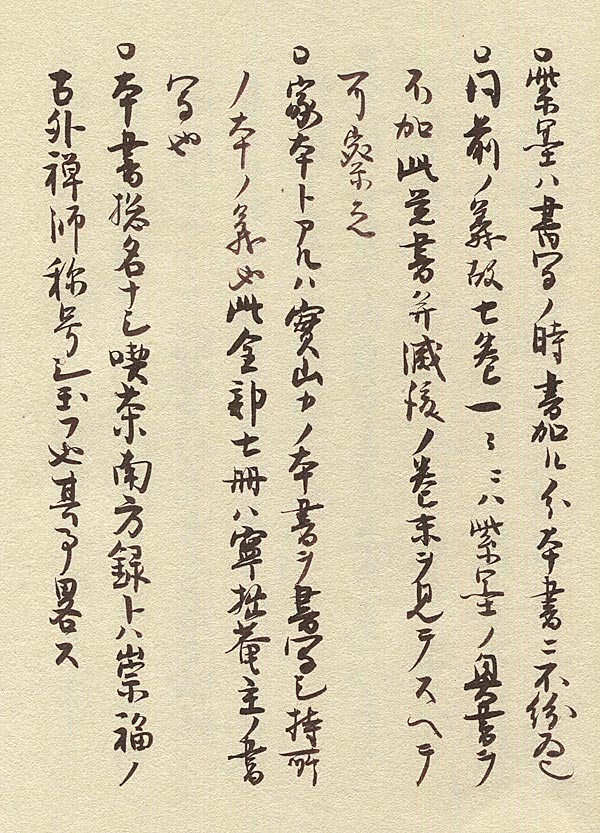 ○紫墨ハ書写ノ時書加ル分本書ニ不紛為也
○同前ノ義故七巻一ミニハ紫墨ノ奥書ヲ
不加此覚書并滅後ノ巻末ヲ見テスヘテ
可察之
○家本トアルハ實山カノ本書ヲ書写シ持所
ノ本ノ義也此全部七冊ハ寧拙庵主ノ書
写也
○本書惣名ナシ喫茶南方録トハ崇福ノ
古外禅師称号シ玉フ也其事畧ス